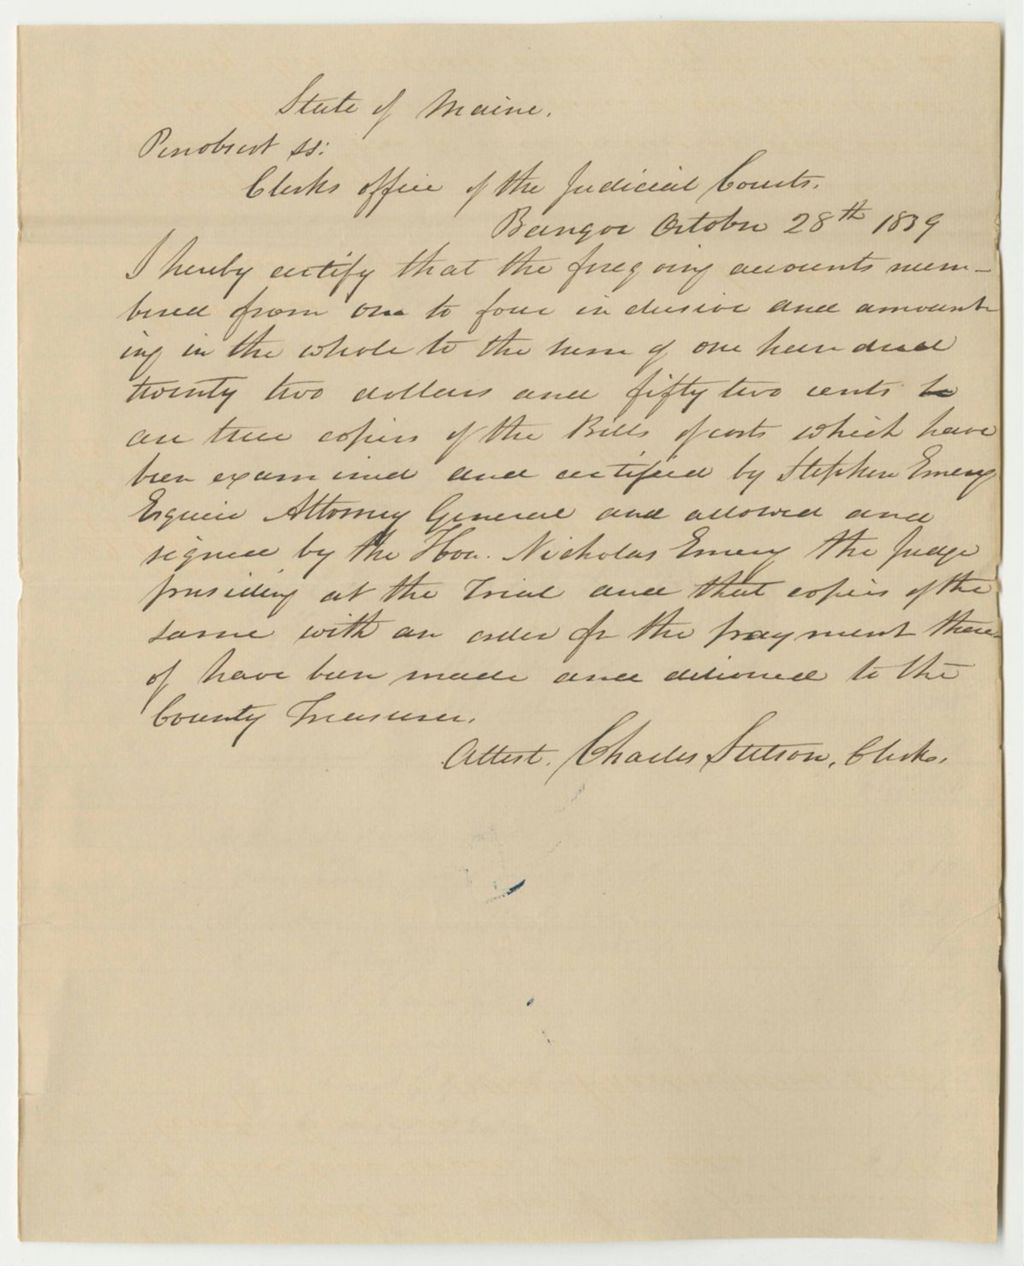 State of Maine.
Penobscot ss:
Clerks office of the Judicial Courts.
Bangor October 28th 1839
I hereby certify that the foregoing accounts num-
bered from one to four inclusive and amount-
ing in the whole to the sum of one hundred
twenty two dollars and fifty two cents
are true copies of the Bills of costs which have
been examined and certified by Stephen Emery
Esquire Attorney General and allowed and
signed by the Hon. Nicholas Emery the Judge
presiding at the Trial and that copies of the
same with an order for the payment there-
of have been made and delivered to the
County Treasurer.
Attest. Charles Stetson, Clerk.